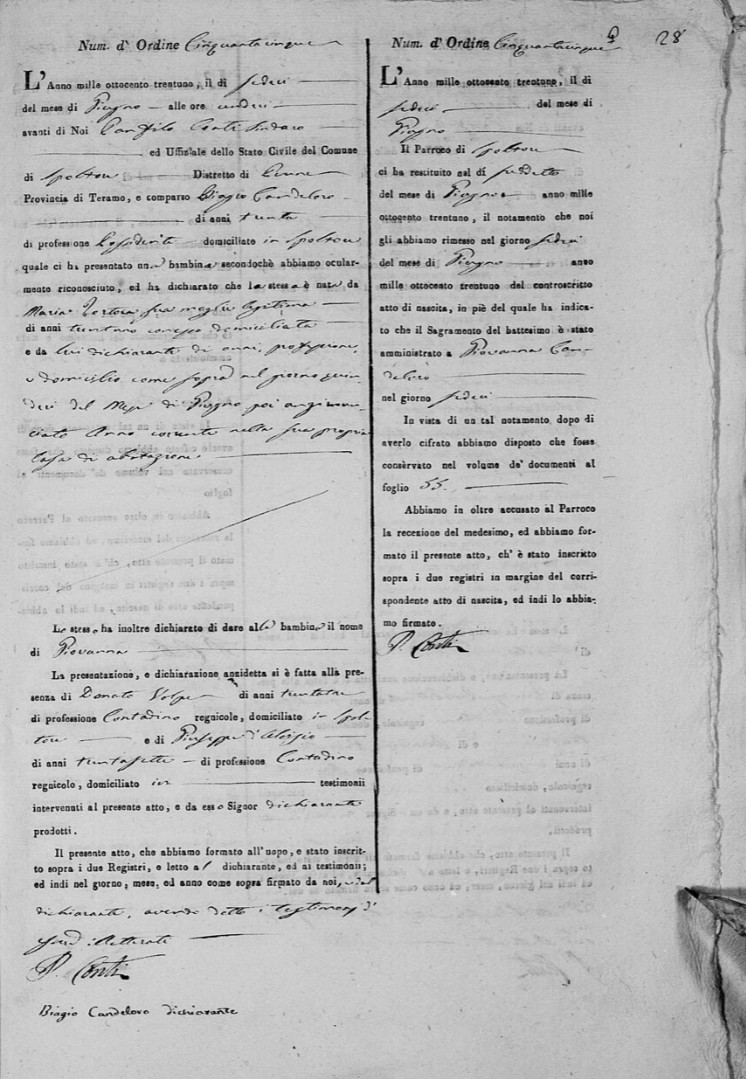 28
Num. d' Ordine Cinquantacinque
L'Anno mille ottocento trentuno, il dì sedici
del mese di Giugno alle ore undici
avanti di Noi Conti Sindaco
ed Uffiziale dello Stato Civile del Comune
di Spoltore Distretto di Penne
Provincia di Teramo, e comparso Biagio Candeloro
di anni trenta
di professione domiciliato in Spoltore
quale ci ha presentato una bambina secondochè abbiamo ocular-
mente riconosciuto, ed ha dichiarato che la stessa è nata da
Maria Tortora sua moglie legittima
di anni trentuno domiciliata
e da lui dichiarante di anni, professione,
e domicilio come sopra nel giorno quin-
dici del Mese di Giugno poi annun-
ciato Anno corrente nella sua propria
Casa di abitazione
La stessa ha inoltre dichiarato di dare alla bambina il nome
di Giovanna
La presentazione, e dichiarazione anzidetta si è fatta alla pre-
senza di Donato Volpe di anni trentatre
di professione Contadino regnicolo, domiciliato in Spol-
tore e di Giuseppe d'Aloisio
di anni trentasette di professione Contadino
regnicolo, domiciliato in testimonii
intervenuti al presente atto, e da esso Signor dichiarante
prodotti.
Il presente atto, che abbiamo formato all'uopo, e stato inscrit-
to sopra i due Registri, e letto al dichiarante, ed ai testimonii;
ed indi nel giorno, mese, ed anno come sopra firmato da noi, e dal
dichiarante, avendo detto i testimonj d'
illetterati
P. Conti
Biagio Candeloro dichiarante
Num. d' Ordine Cinquantacinque
L'Anno mille ottocento trentuno, il dì
sedici del mese di
Giugno
Il Parroco di Spoltore
ci ha restituito nel dì suddetto
del mese di Giugno anno mille
ottocento trentuno, il notamento che noi
gli abbiamo rimesso nel giorno sedici
del mese di Giugno anno
mille ottocento trentuno del controscritto
atto di nascita, in piè del quale ha indica-
to che il Sagramento del battesimo è stato
amministrato a Giovanna Can-
deloro
nel giorno sedici
In vista di un tal notamento, dopo di
averlo cifrato abbiamo disposto che fosse
consèrvato nel volume de' documenti al
foglio 55.
Abbiamo in oltre accusato al Parroco
la recezione del medesimo, ed abbiamo for-
mato il presente atto, ch' è stato inscritto
sopra i due registri in margine del corri-
spondente atto di nascita, ed indi lo abbia-
mo firmato.
P. Conti